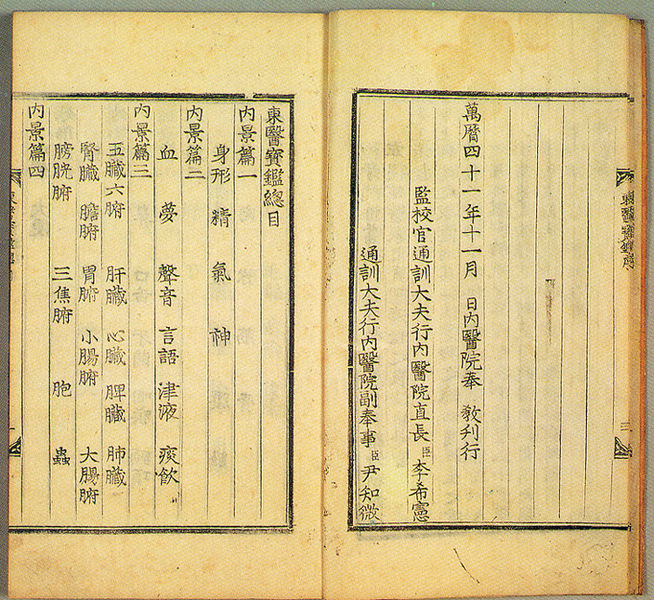 東醫寶鑑序 三
萬曆四十一年十一月 日內醫院奉 敎刋行
監校官通訓大夫行內醫院直長臣李希憲
通訓大夫行內醫院副奉事臣尹知微
東醫寶鑑總目
內景篇一
身形 精 氣 神
內景篇二
血 夢 聲音 言語 津液 痰飮
內景篇三
五臟六腑 肝臟 心臟 脾臟 肺臟
腎臟 膽腑 胃腑 小腸腑 大腸腑
膀胱腑 三焦腑 胞 蟲
內景篇四